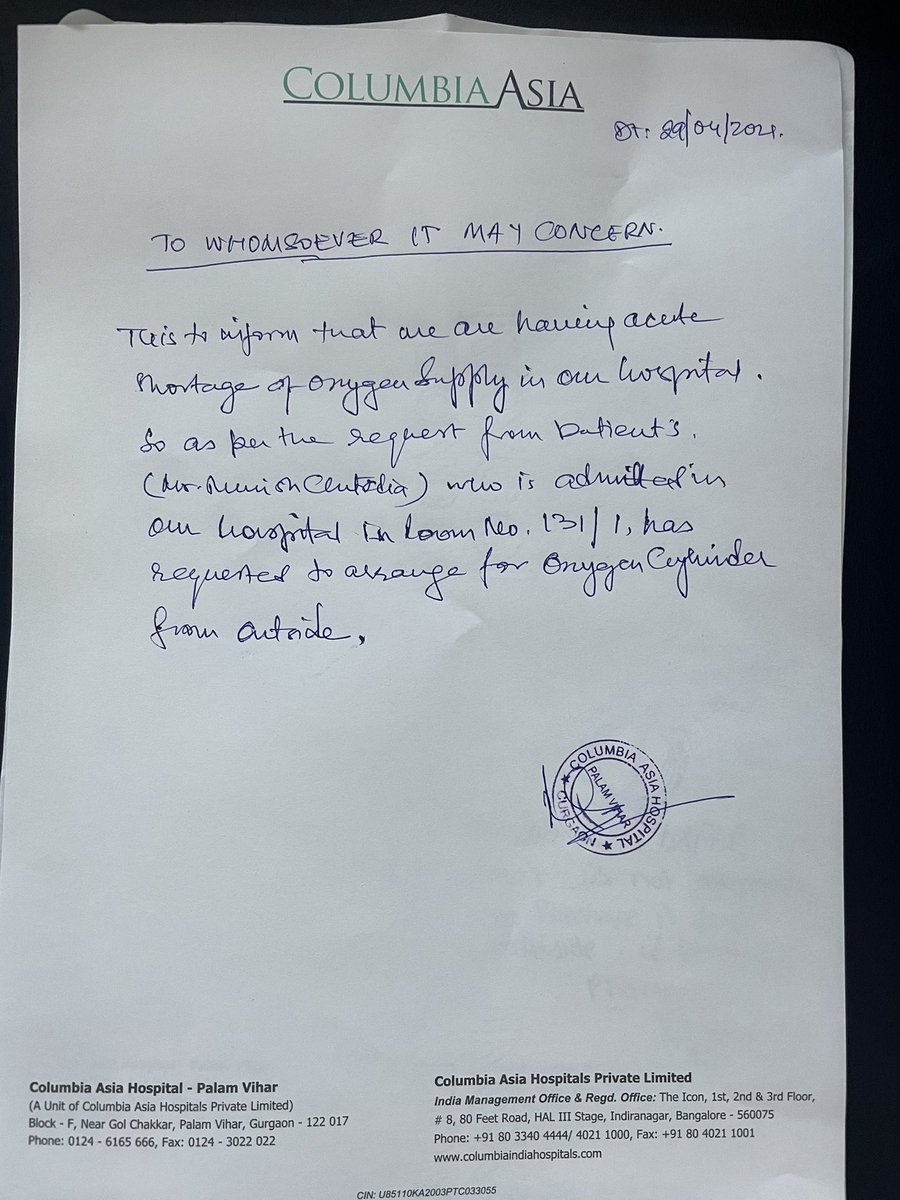 COLUMBIA ASIA
Dt: 29/04/2021.
TO WHOMSOEVER IT MAY CONCERN.
This to inform that we are having acute
shortage of oxygen supply in our hospital.
So as per the request from Patient's.
(Mr. ) who is admitted in
our hospital in Room No. 131/1, has
requested to arrange for oxygen Cylinder
from outside.
COLUMBIA ASIA HOSPITAL
PALAM VIHAR
GURGAON
Columbia Asia Hospital - Palam Vihar
(A Unit of Columbia Asia Hospitals Private Limited)
Block - F, Near Gol Chakkar, Palam Vihar, Gurgaon - 122 017
Phone: 0124 - 6165 666, Fax: 0124 - 3022 022
Columbia Asia Hospitals Private Limited
India Management Office & Regd. Office: The Icon, 1st, 2nd & 3rd Floor,
# 8, 80 Feet Road, HAL III Stage, Indiranagar, Bangalore - 560075
Phone: +91 80 3340 4444/ 4021 1000, Fax: +91 80 4021 1001
www.columbiaindiahospitals.com
CIN: U85110KA2003PTC033055